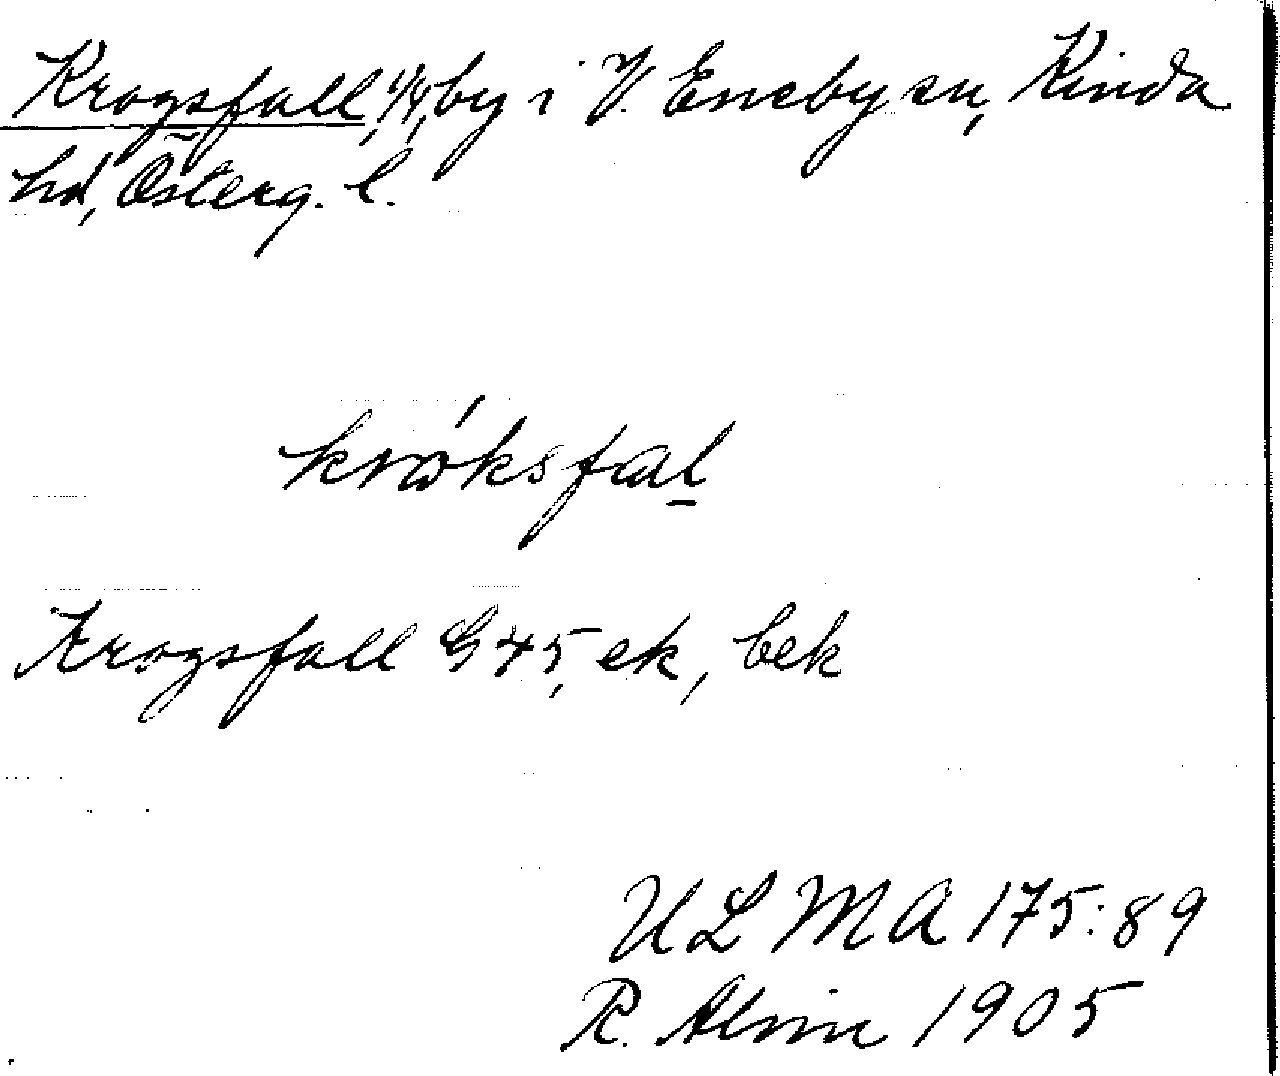 Krogsfall, 1/4, by i V. Eneby sn, Kinda
hd, Österg. l.
króksfal
Krogsfall G 45, ek, bek
ULMA 175:89
R. Almin 1905